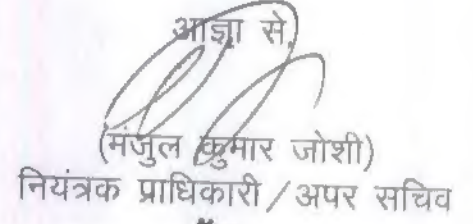 आज्ञा से,
(मंजुल कुमार जोशी)
नियंत्रक प्राधिकारी / अपर सचिव